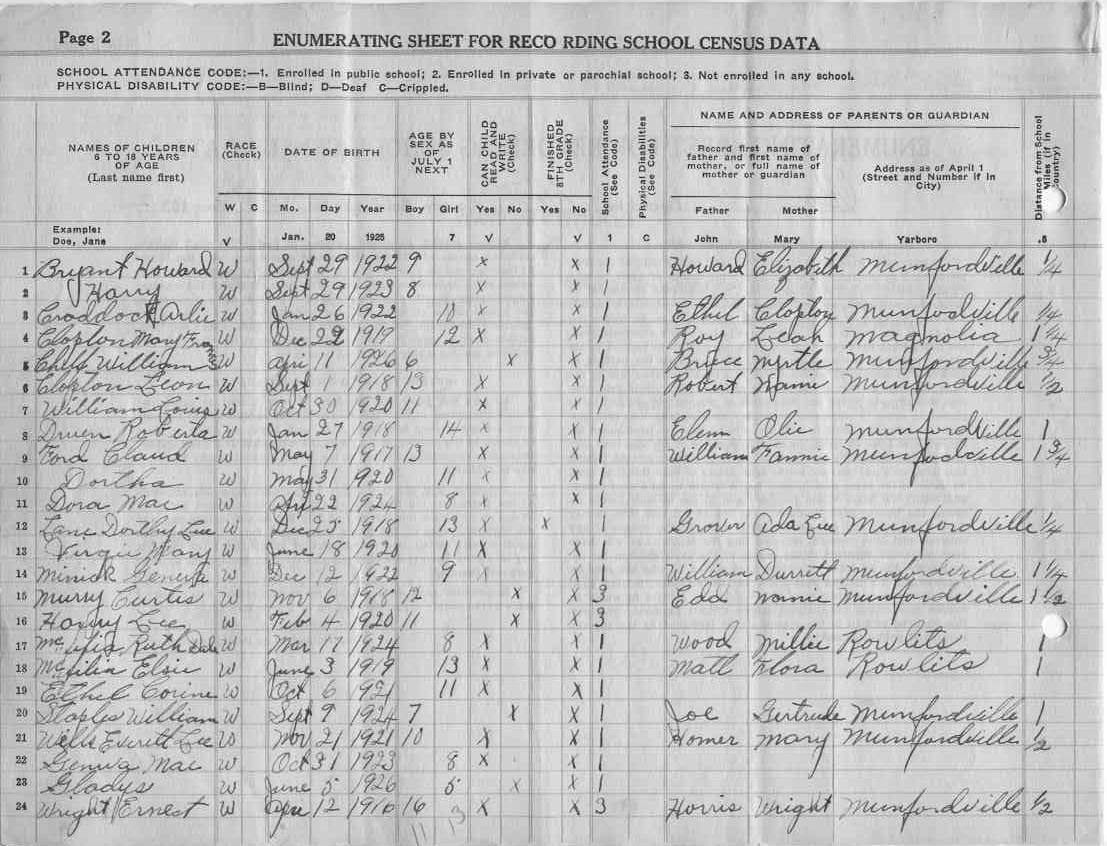 Page 2
ENUMERATING SHEET FOR RECO RDING SCHOOL CENSUS DATA
SCHOOL ATTENDANCE CODE:—1. Enrolled in public school; 2. Enrolled in private or parochial school; 3. Not enrolled in any school.
PHYSICAL DISABILITY CODE:—B—Blind; D—Deaf C—Crippled.
NAMES OF CHILDREN 6 TO 18 YEARS OF AGE (Last name first)
RACE (Check)
DATE OF BIRTH
AGE BY SEX AS OF JULY 1 NEXT
CAN CHILD READ AND WRITE (Check)
FINISHED 8TH GRADE (Check)
School Attendance (See Code)
Physical Disabilities (See Code)
NAME AND ADDRESS OF PARENTS OR GUARDIAN
Record first name of father and first name of mother, or full name of mother or guardian
Address as of April 1 (Street and Number if in City)
Distance from School Miles (if in Country)
W C Mo. Day Year Boy Girl Yes No Yes No Father Mother
Example: Doe, Jane V Jan. 20 1925 7 V V 1 C John Mary Yarboro .5
1 Bryant Howard W Sept 29 1922 9 x x 1 Howard Elizabeth Munfordville 1/4
2 Harry W Sept 29 1923 8 x x 1
3 Craddock Arlie W Jan 26 1922 10 x x 1 Ethel Clopton Munfodville 1/4
4 Clopton Mary Frances W Dec 22 1917 12 x x 1 Roy Leah Magnolia 1 1/4
5 William W April 11 1926 6 x x 1 Bruce Myrtle Munfordville 3/4
6 Clopton Leon W Sept 1 1918 13 x x 1 Robert Mamie Munfordville 1/2
7 William Louis W Oct 30 1920 11 x x 1
8 Druen Roberta W Jan 27 1918 14 x x 1 Elenn Olie Munfordville 1
9 Ford Claud W May 7 1917 13 x x 1 William Fannie Munfodville 1 3/4
10 Dortha W May 31 1920 11 x x 1
11 Dora Mae W Apr 22 1924 8 x x 1
12 Lane Dorthy Lee W Dec 25 1918 13 x x 1 Grover Ada Lee Munfordville 1/4
13 Virgie Mary W June 18 1920 11 x x 1
14 Minick Geneva W Dec 12 1922 9 x x 1 William Durrett Munfordville 1 1/4
15 Murry Curtis W Nov 6 1918 12 x x 3 Edd Mamie Munfordville 1 1/2
16 Harry Lee W Feb 4 1920 11 x x 3
17 Ruth Dale W Mar 17 1924 8 x x 1 Wood Millie Rowlits 1
18 Elsie W June 3 1919 13 x x 1 Matt Flora Rowlits 1
19 Ethel Corine W Oct 6 1921 11 x x 1
20 Staples William W Sept 9 1924 7 x x 1 Joe Gertrude Munfordville 1
21 Wells Everett Lee W Nov 21 1921 10 x x 1 Homer Mary Munfordville 1/2
22 Geneva Mae W Oct 31 1923 8 x x 1
23 Gladys W June 5 1926 5 x x 1
24 Wright Ernest W 12 1916 16 x x 3 Horris Wright Munfordville 1/2
11 13